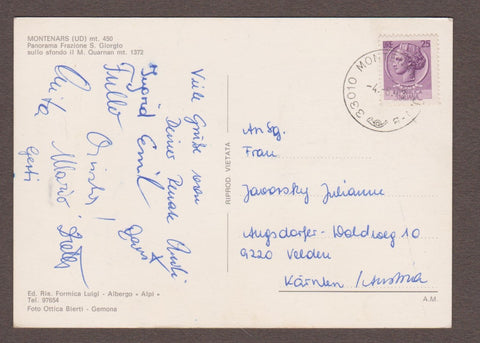 MONTENARS (UD) mt. 450
Panorama Frazione S. Giorgio
sullo sfondo il M. Quarnan mt. 1372
Viele Grüße von
Ingrid Emil
Tullo
Anita Mario
Gerti
RIPROD. VIETATA
25
33010 MON
An Sg.
Frau
Javorsky Julianne
Augsdorfer-Waldweg 10
9220 Velden
Kärnten / Austria
Ed. Ris. Formica Luigi - Albergo «Alpi»
Tel. 97654
Foto Ottica Bierti - Gemona
A.M.